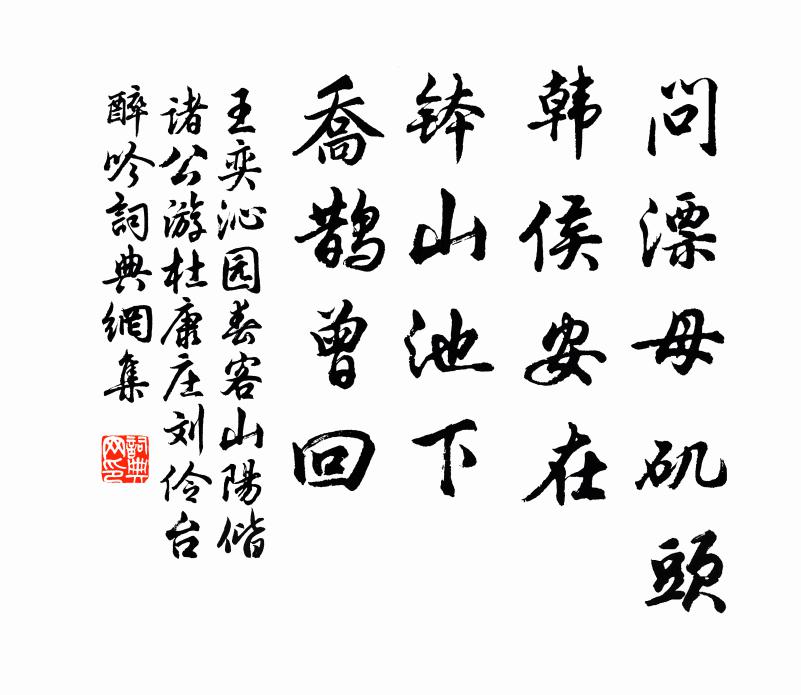 問漂母矶頭
韩侯安在
钵山池下
喬鹊曾回
王奕沁园春客山陽偕
诸公游杜康庄刘伶台
醉吟詞典網集
詞典网印